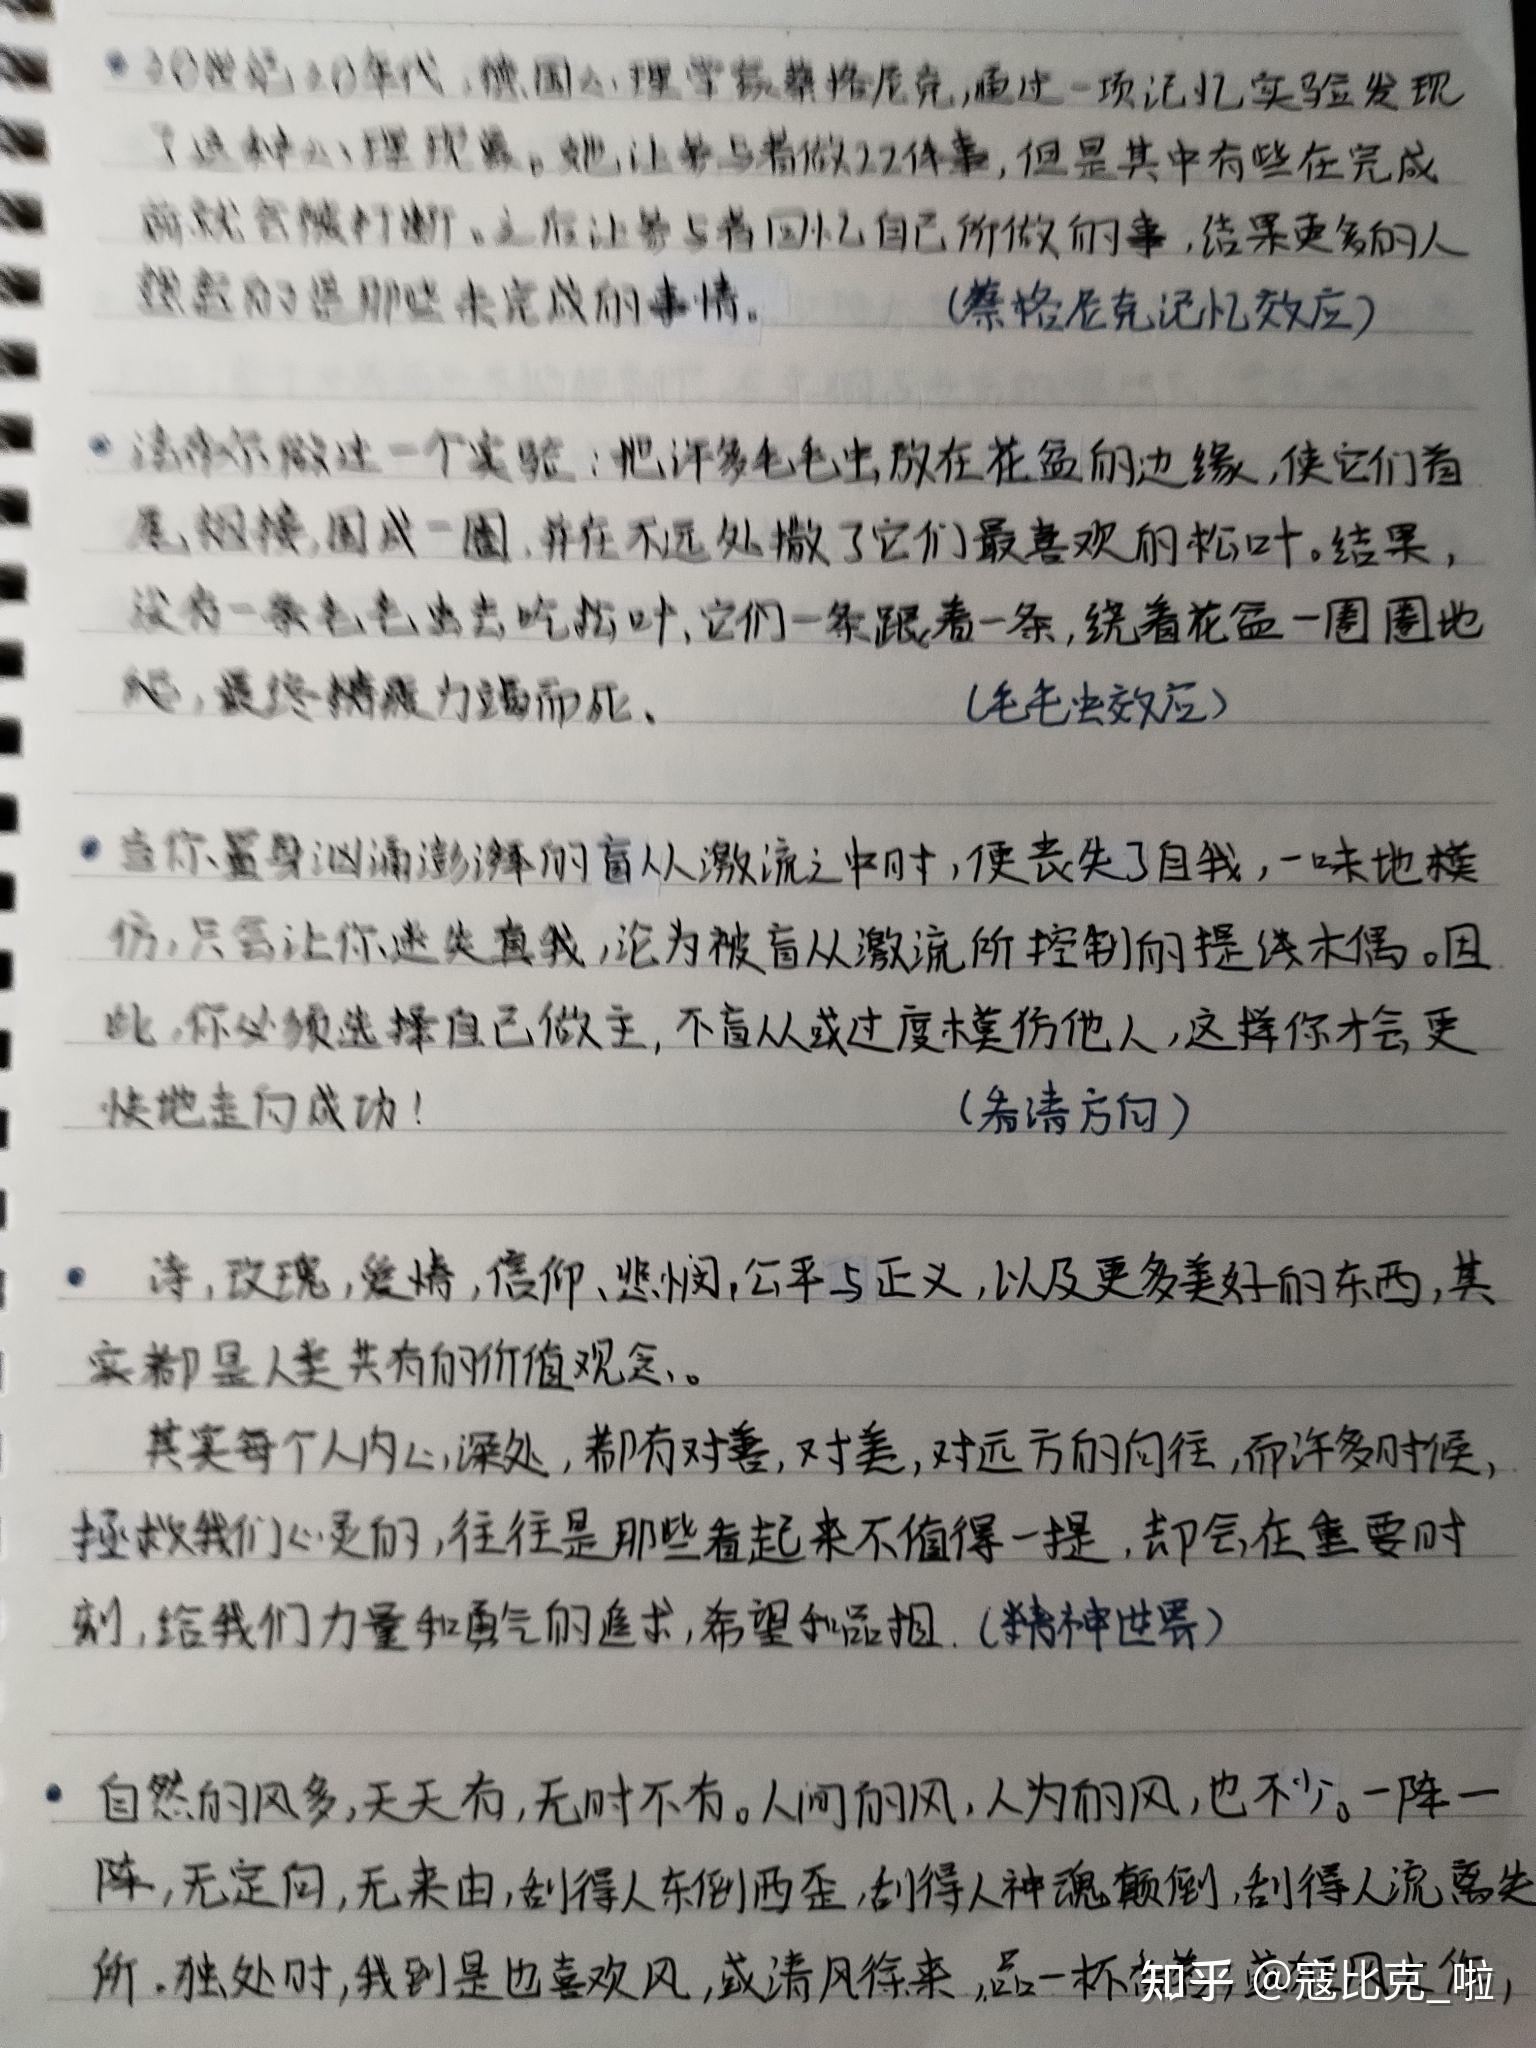 20世纪20年代，德国心理学家蔡格尼克，通过一项记忆实验发现
了这种心理现象。她让参与者做22件事，但是其中有些在完成
前就会被打断。之后让参与者回忆自己所做的事，结果更多的人
的是那些未完成的事情。 （蔡格尼克记忆效应）
法布尔做过一个实验：把许多毛毛虫放在花盆的边缘，使它们首
尾相接，围成一圈，并在不远处撒了它们最喜欢的松叶。结果，
没有一条毛毛虫去吃松叶，它们一条跟着一条，绕着花盆一圈圈地
爬，最终精疲力竭而死。 （毛毛虫效应）
当你置身汹涌澎湃的盲从激流之中时，便丧失了自我，一味地模
仿，只会让你迷失真我，沦为被盲从激流所控制的提线木偶。因
此，你必须选择自己做主，不盲从或过度模仿他人，这样你才会更
快地走向成功！ （看清方向）
诗，玫瑰，爱情，信仰、悲悯，公平与正义，以及更多美好的东西，其
实都是人类共有的价值观念。
其实每个人内心深处，都有对善，对美，对远方的向往，而许多时候，
拯救我们心灵的，往往是那些看起来不值得一提，却会在重要时
刻，给我们力量和勇气的追求，希望和品相.（精神世界）
自然的风多，天天有，无时不有。人间的风，人为的风，也不少。一阵一
阵，无定向，无来由，刮得人东倒西歪，刮得人神魂颠倒，刮得人流离失
所.独处时，我到是也喜欢风，或清风徐来，品一杯
知乎 @寇比克_啦